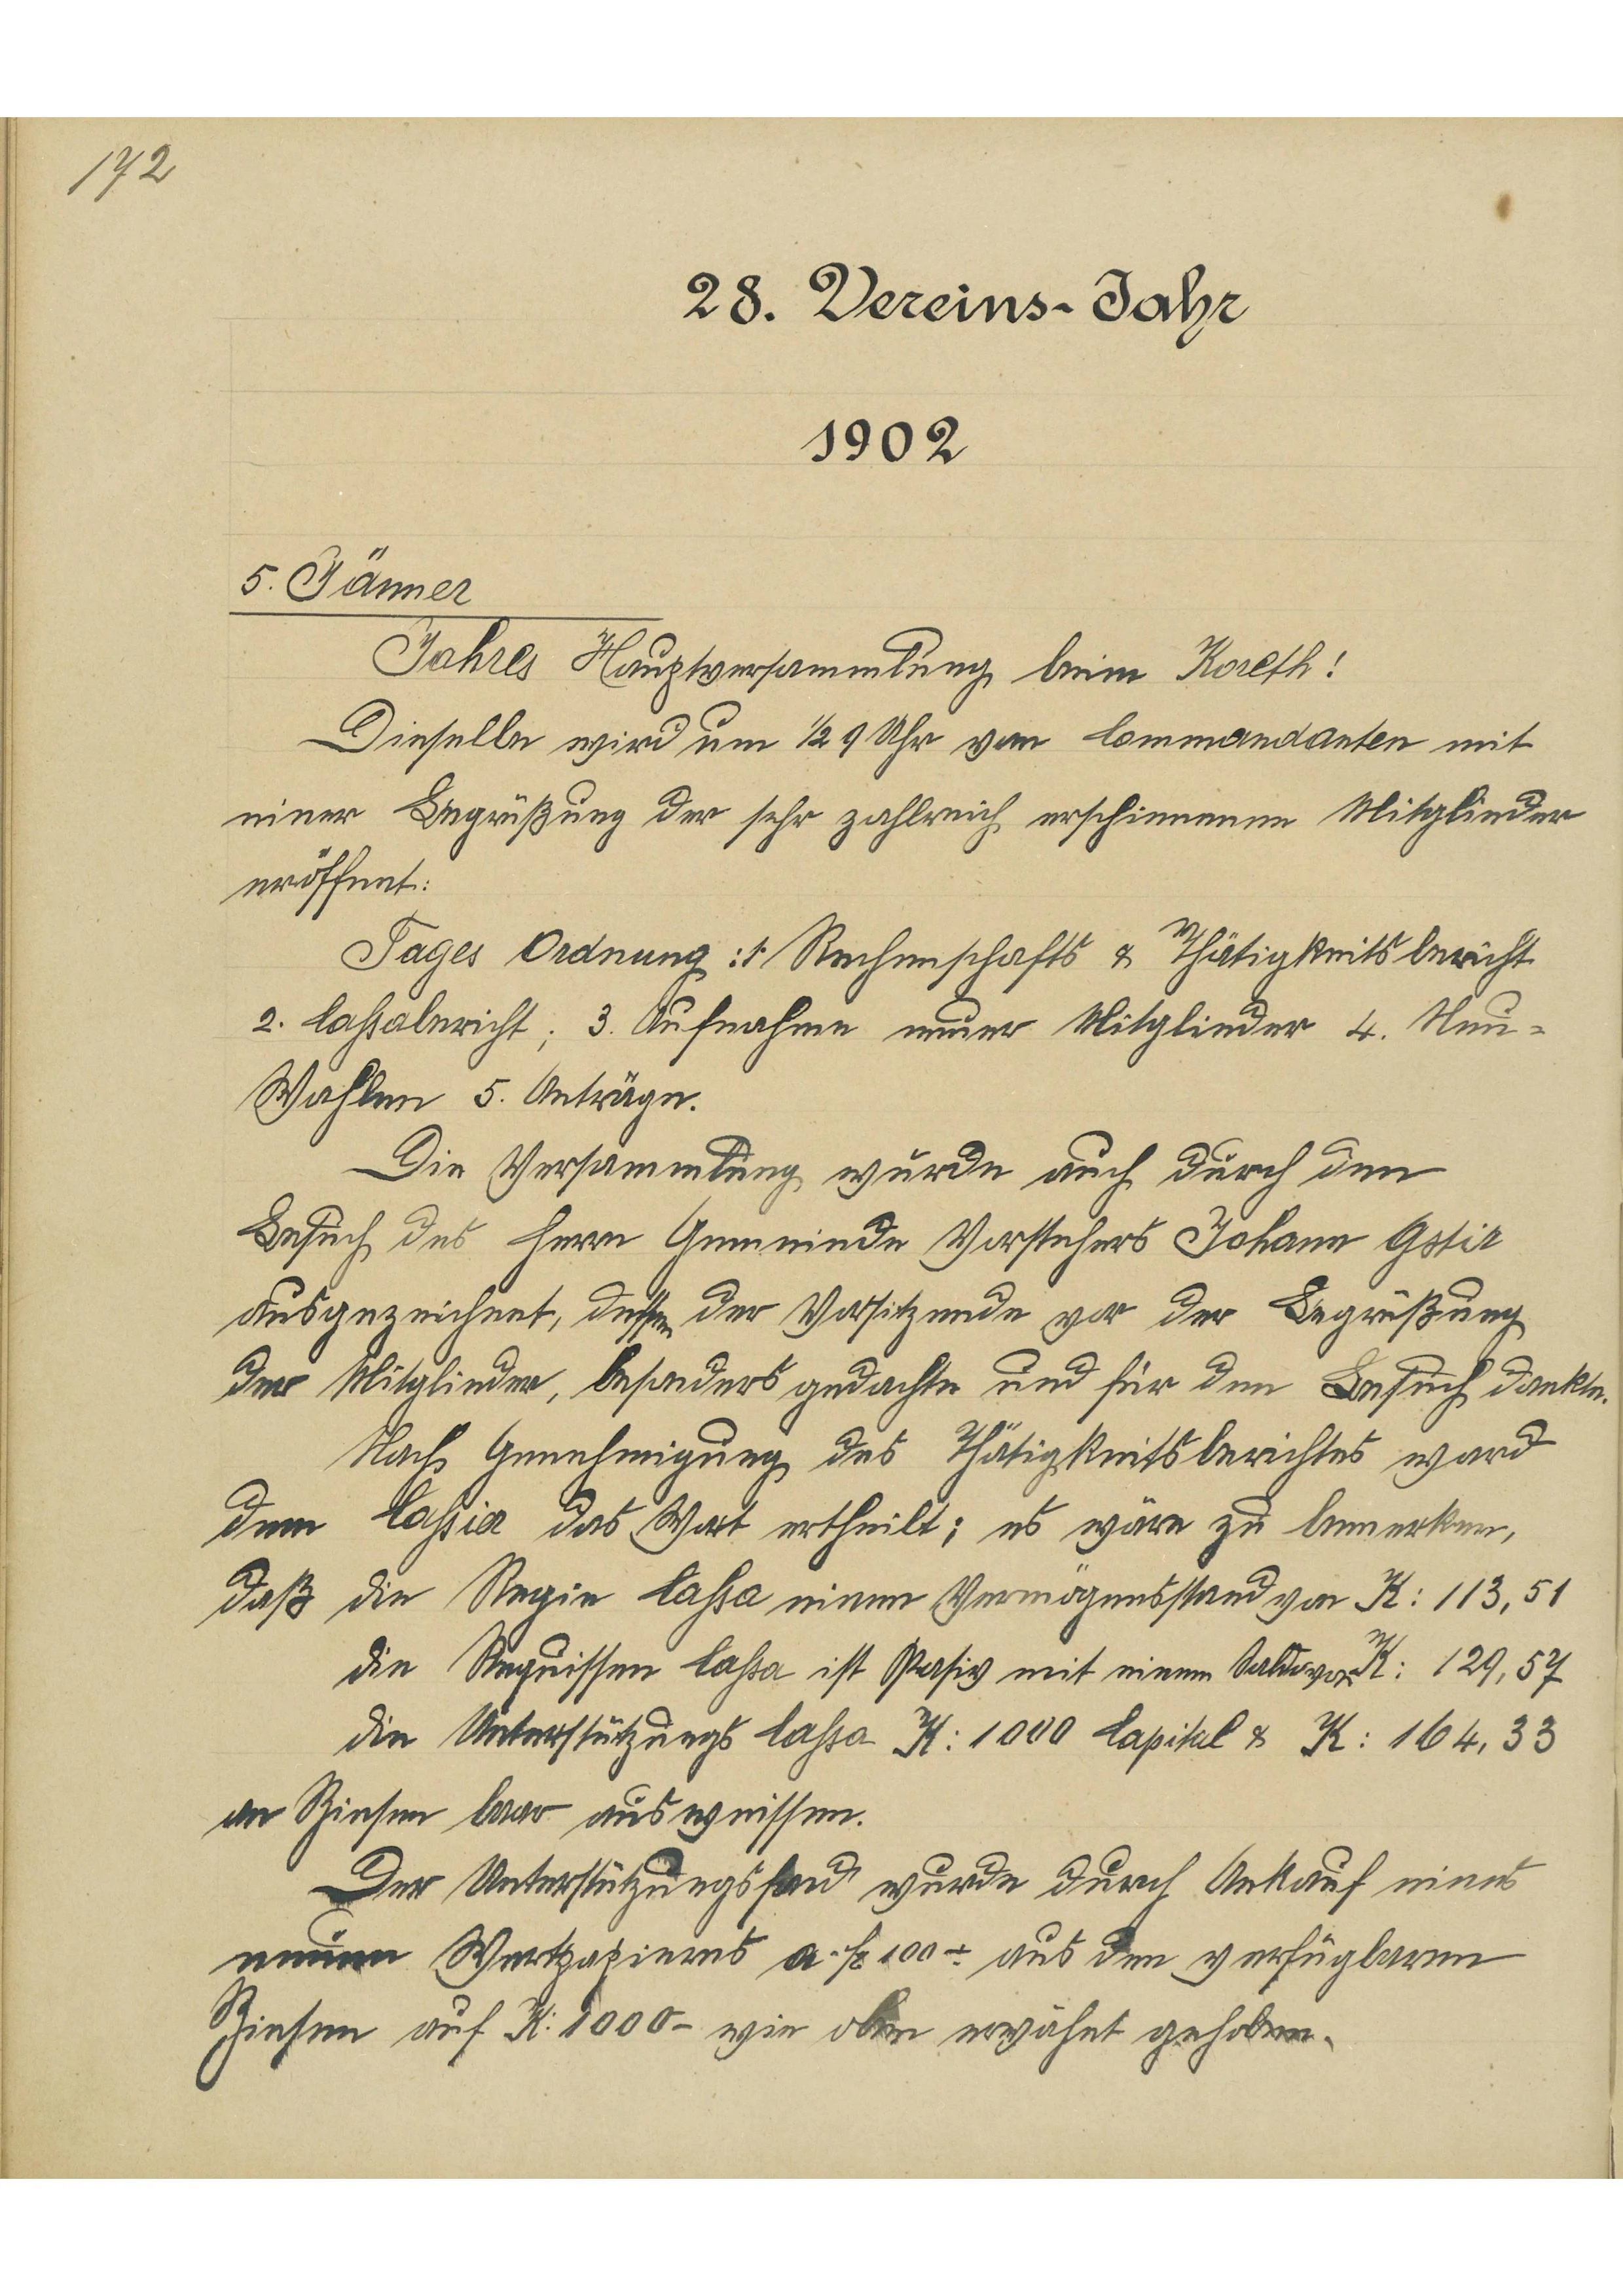 172
28. Vereins-Jahr
1902
5. Jänner
Jahres Hauptversammlung beim Koreth!
Dieselbe wird um ½ 9 Uhr von Commandanten mit
einer Begrüßung der sehr zahlreich erschienenen Mitglieder
eröffnet:
Tages Ordnung: 1. Rechenschafts & Thätigkeitsbericht
2. Cassabericht; 3. Aufnahme neuer Mitglieder 4. Neu=
Wahlen 5. Anträge.
Die Versammlung wurde auch durch den
Besuch des Herrn Gemeinde Vorstehers Johann Gstir
ausgezeichnet, dessen der Vorsitzende vor der Begrüßung
der Mitglieder, besonders gedachte und für den Besuch dankte.
Nach Genehmigung des Thätigkeitsberichtes ward
dem Cassier das Wort ertheilt; es wäre zu bemerken,
daß die Regie Cassa einen Vermögensstand von K: 113,51
die Requissen Cassa ist Pasiv mit einem Saldo von K: 129,57
die Unterstützungs Cassa K: 1000 Capital & K: 164,33
an Zinsen baar ausweissen.
Der Unterstützungsfond wurde durch Ankauf eines
neuen Wertpapieres a fl 100 aus den verfügbaren
Zinsen auf K: 1000- wie oben erwähnt gehoben.